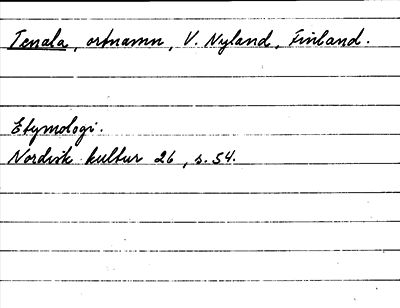 Tenala, ortnamn, V. Nyland, Finland.
Etymologi.
Nordisk kultur 26, s. 54.